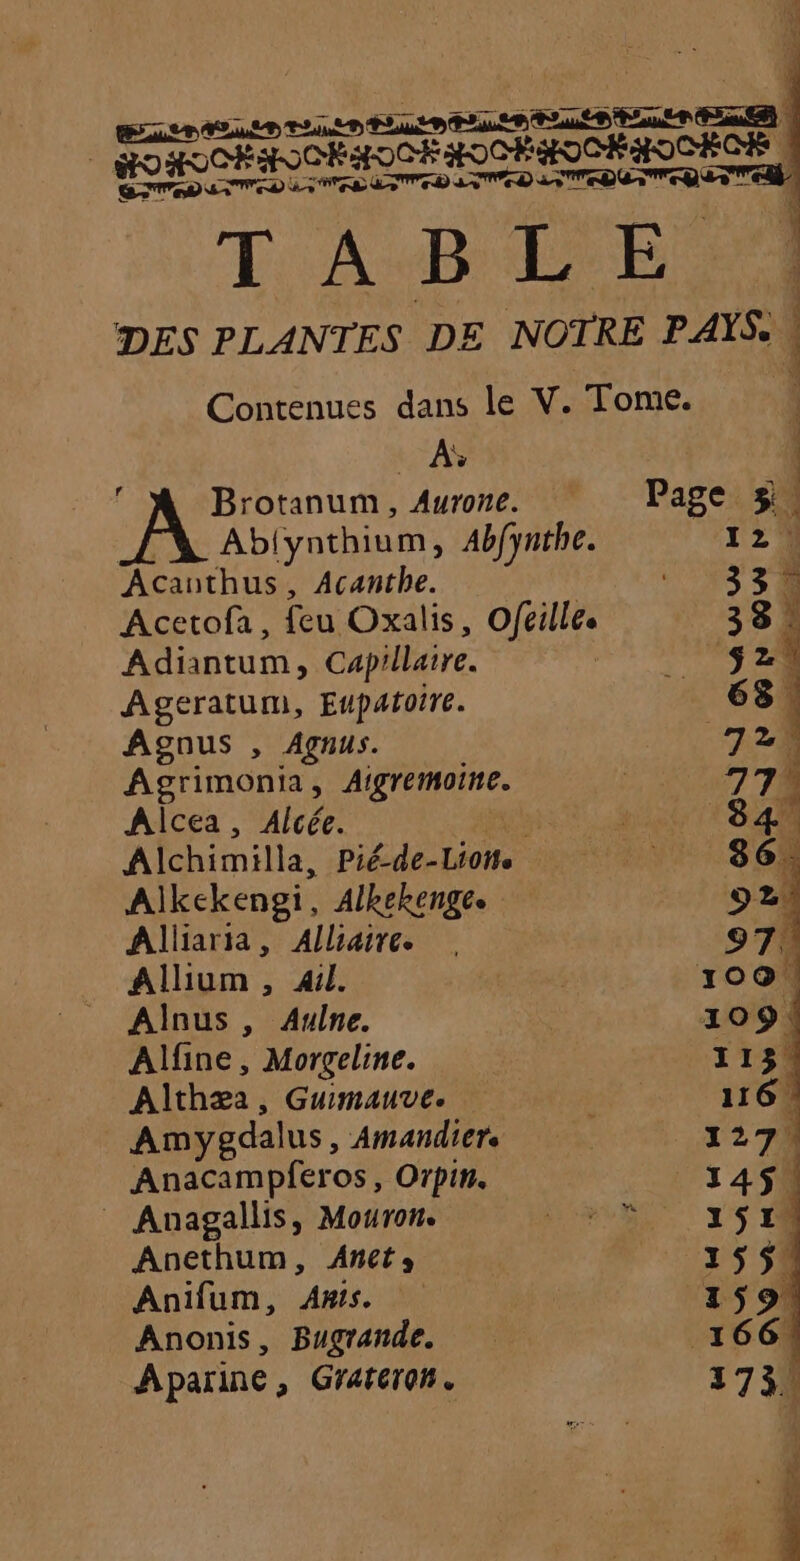 TABLE
DES PLANTES DE NOTRE PAYS.
Contenues dans le V. Tome.
A.
ABrotanum, Aurone. Page 3
Abſynthium, Abſynthe. 12
Acanthus, Acanthe. 33
Acetoſa, ſeu Oxalis, Oſeille. 38
Adiantum, Capillaire. 52
Ageratum, Eupatoire. 68
Agnus , Agnus. 72
Agrimonia, Aigremoine. 77
Alcea, Alcée. 84
Alchimilla, Pié-de-Lion. 86
Alkekengi, Alkekenge. 92
Alliaria, Alliaire. 97
Allium , Ail. 100
Alnus , Aulne. 109
Alſine, Morgeline. 113
Althæa, Guimauve. 116
Amygdalus, Amandier. 127
Anacampſeros, Orpin. 145
Anagallis, Mouron. 151
Anethum, Anet, 155
Aniſum, Anis. 159
Anonis, Bugrande. 166
Aparine, Grateron. 173